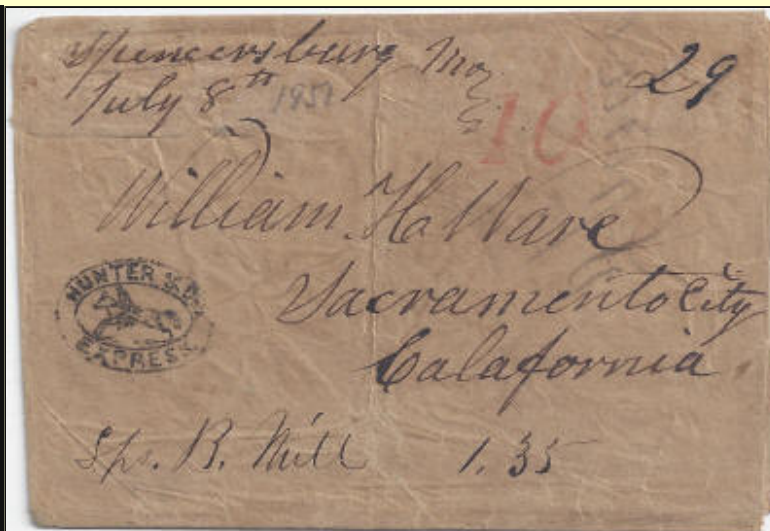 Spencersburg Mo
July 8th 1851
29
10
William H Ware
Sacramento City
Calafornia
HUNTER & Co.
EXPRESS
B. Mill 1.35